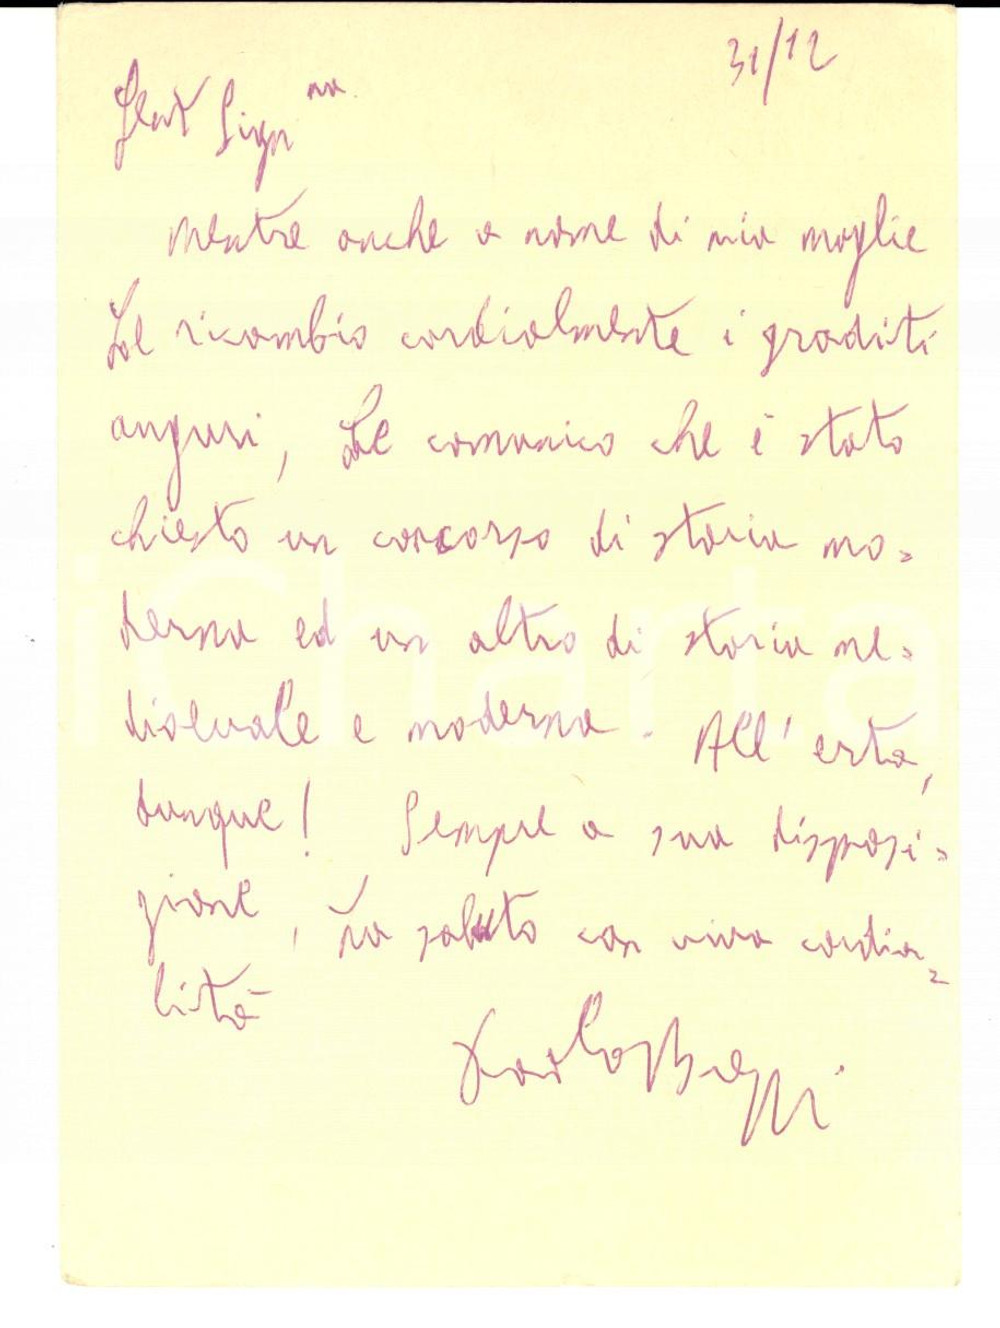 31/12
Gent Sign na
mentre anche a nome di mia moglie
Le ricambio cordialmente i graditi
auguri, Le comunico che è stato
chiesto un concorso di storia mo=
derna ed un altro di storia me=
dioevale e moderna. All'erta,
dunque! Sempre a sua disposi=
zione, La saluto con viva cordia=
lità
iCharta